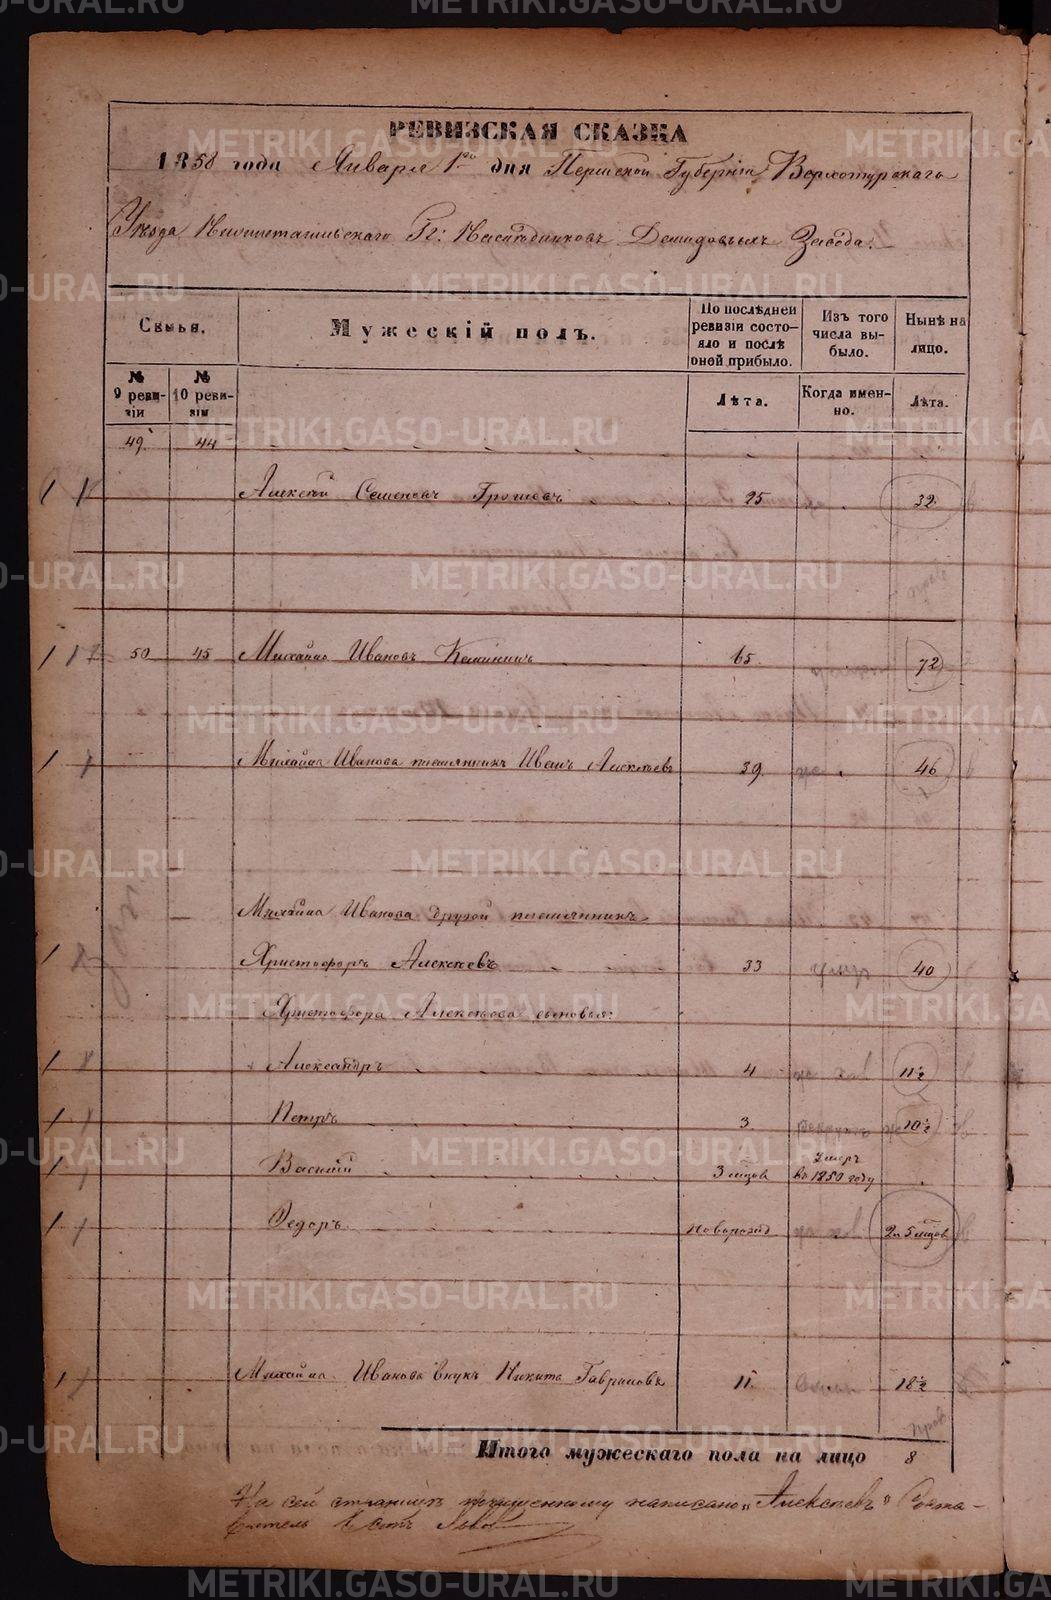 РЕВИЗСКАЯ СКАЗКА
1858 года Января 1го дня Пермской Губерніи Верхотурскаго
Уезда Нижнетагильскаго Гг: Наследниковъ Демидовыхъ Завода.
Семья.
Мужескій полъ.
По последней ревизіи состояло и после оной прибыло.
Изъ того числа выбыло.
Ныне на лицо.
№ 9 ревизіи
№ 10 ревизіи
Лета.
Когда именно.
Лета.
49. 44
Алексей Семеновъ 25 32.
50 45 Михайло Ивановъ 65. 72
Михайла Иванова племянникъ Иванъ Алексеевъ 39. 46
Михайла Иванова другой племянникъ
Христофоръ Алексеевъ 33 40
Христофора Алексеева сыновья:
Александръ 4 11½
Петръ 3 10½
Василій 3 мцов умеръ въ 1850 году
Федоръ новорожд 5 мцов
Михайла Иванова внукъ Никита Гавриловъ 11 18½
Итого мужескаго пола на лицо 8
На сей странице написано „Алексеевъ"
METRIKI.GASO-URAL.RU